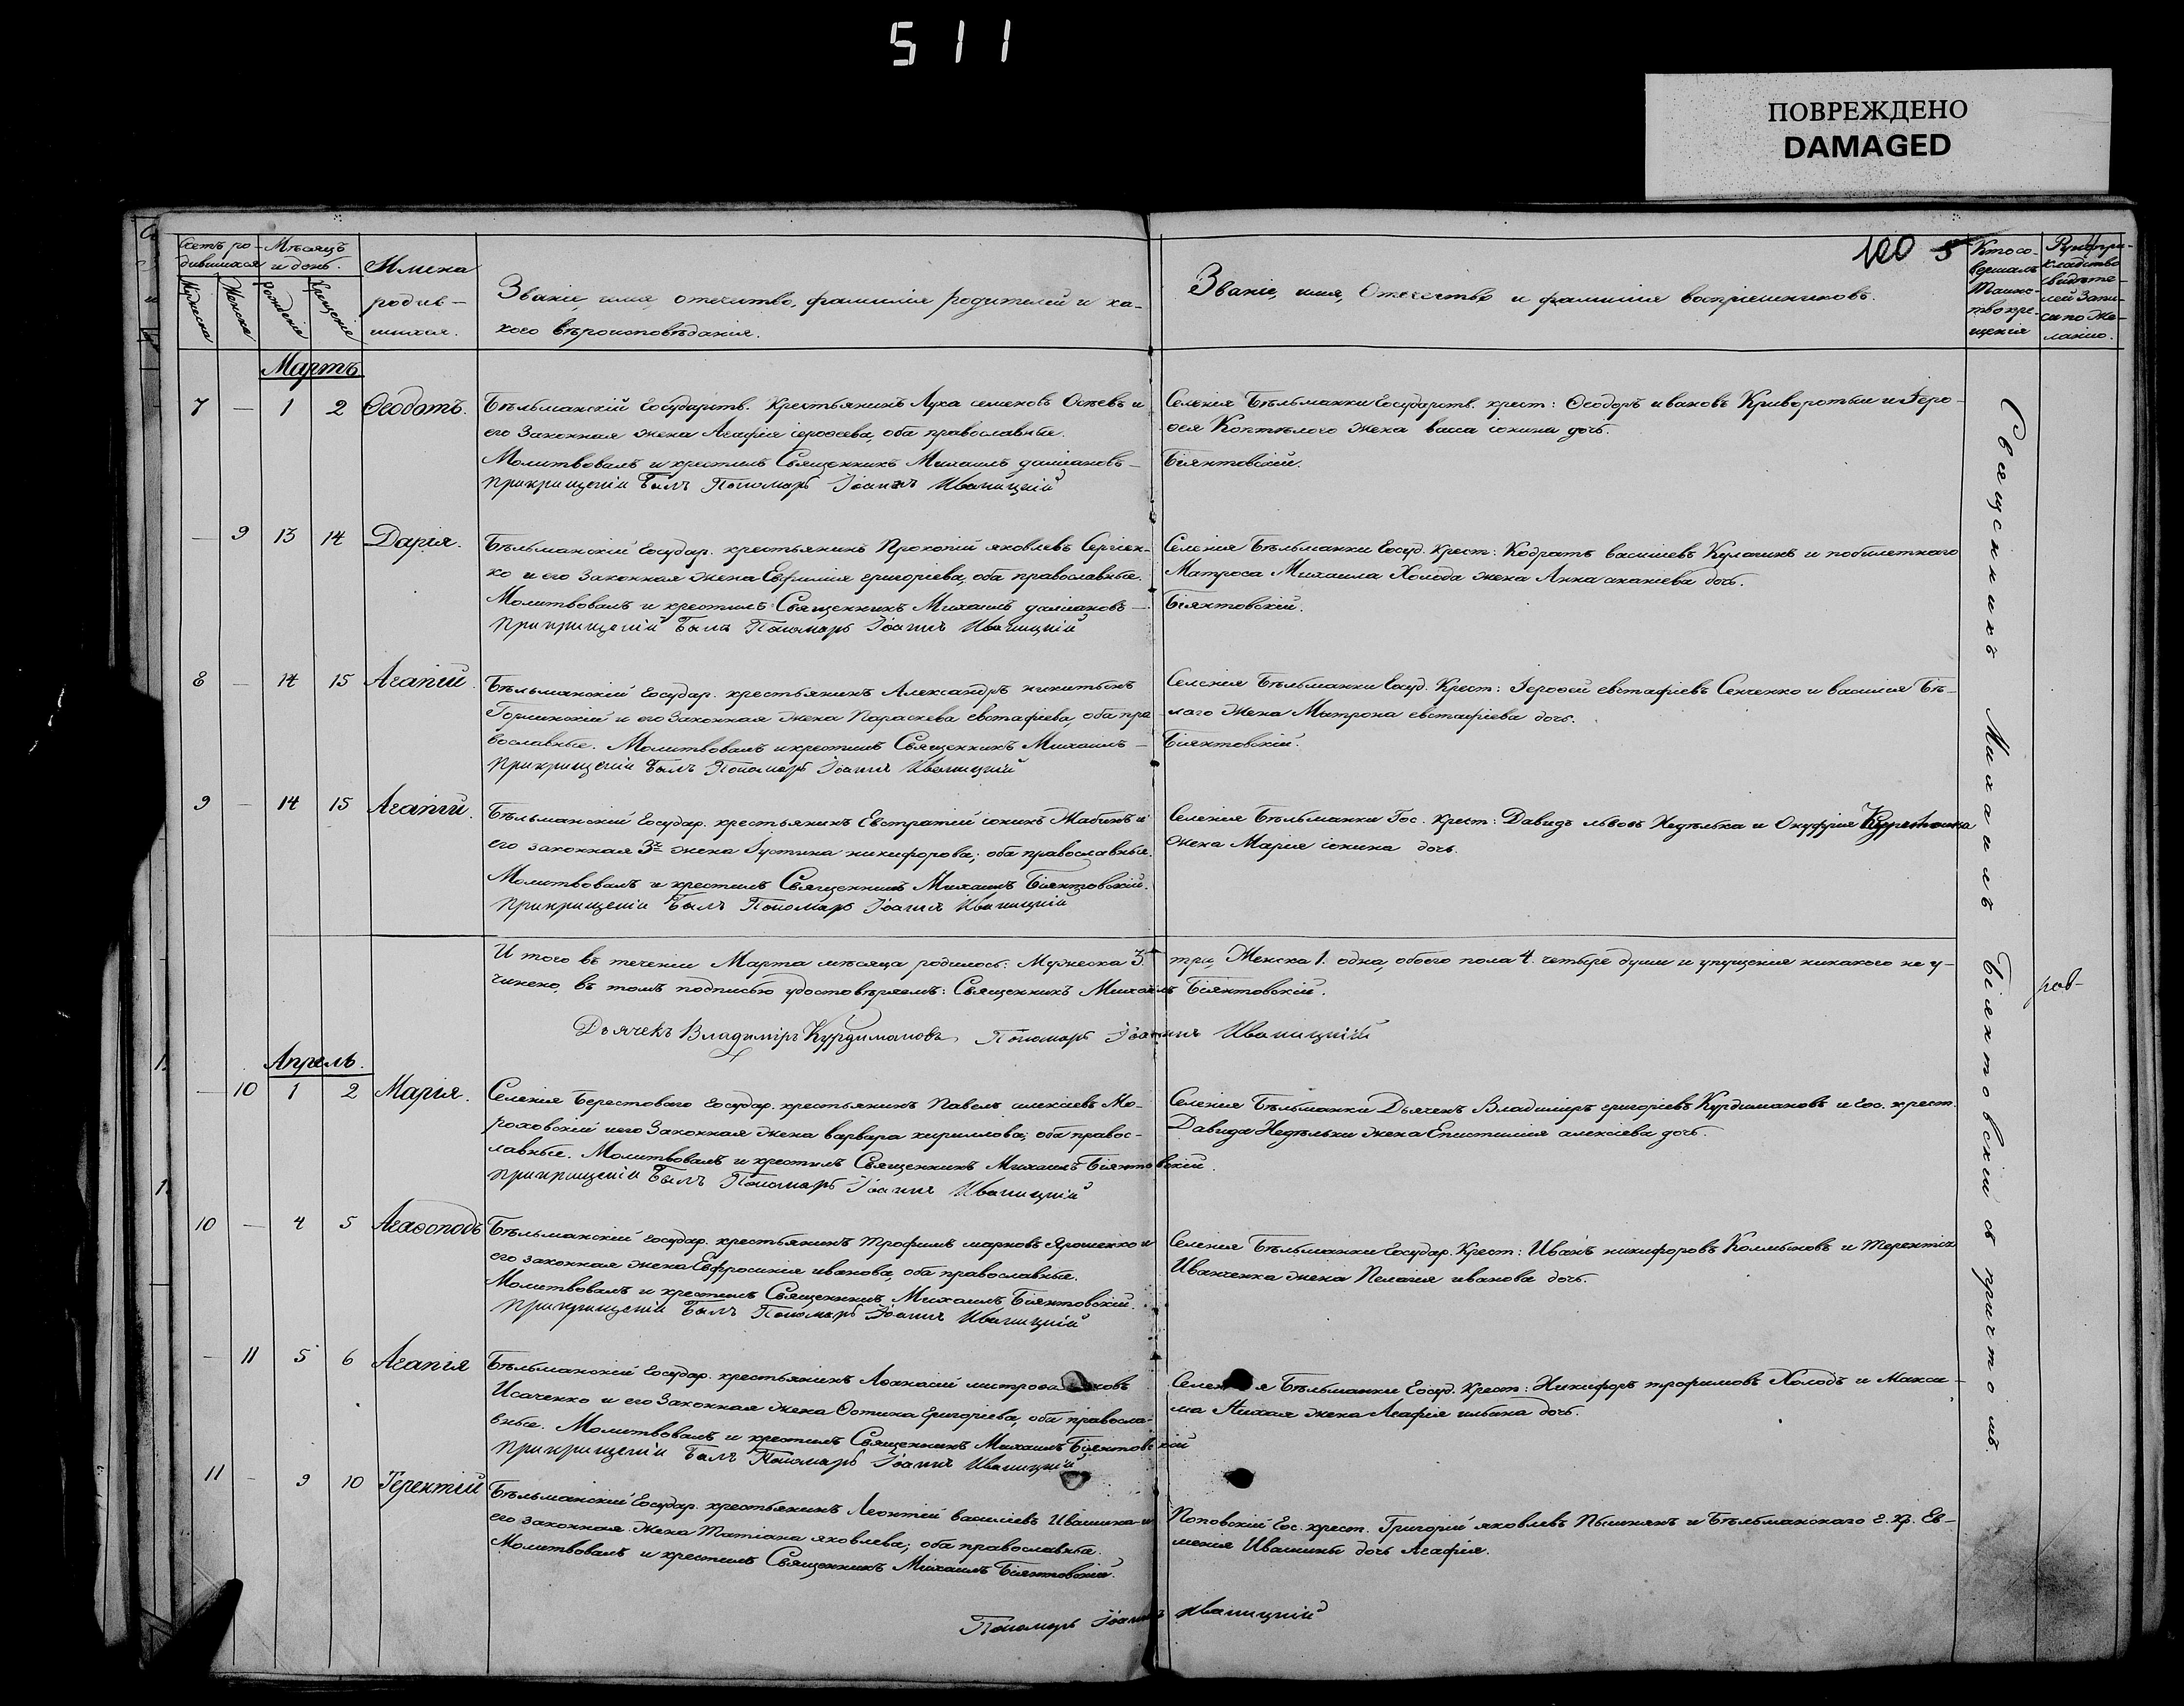 511
ПОВРЕЖДЕНО
DAMAGED
100 5
Счетъ ро-
дившихся
Мужеска
Женска
Мѣсяцъ
и день.
Рожденіе
Крещеніе
Имена
родив-
шихся.
Званіе, имя, отечество, фамилія родителей и ка-
кого вѣроисповѣданія.
Званіе, имя, Отечество и фамилія воспріемниковъ.
Кто со-
вершалъ
Таинс-
тво кре-
щенія
Рукопри-
кладство
свидѣте-
лей Запи-
си по Же-
ланію.
Мартъ
7 — 1 2 Ѳеодотъ. Бѣльманскій Государств. Крестьянинъ Лука семеновъ и
его Законная жена Агафія іероѳеева, оба православные.
Молитвовалъ и крестилъ Священникъ Михаилъ
прикрищеніи Былъ Пономарь Іоаннъ Иваницкій
Селенія Бѣльманки Государств. крест: Ѳеодоръ ивановъ и Іеро-
ѳея жена васса іонина дочь.
Біянтовскій.
— 9 13 14 Дарія. Бѣльманскій Государ. крестьянинъ Прокопій яковлевъ Сергіен-
ко и его Законная жена Евфимія григоріева, оба православные.
Молитвовалъ и крестилъ Священникъ Михаилъ
прикрищеніи Былъ Пономарь Іоаннъ Иваницкій
Селенія Бѣльманки Госуд. Крест: Кодратъ василіевъ Кулагинъ и побилетнаго
Матроса Михаила Холода жена Анна ананіева дочь.
Біянтовскій.
8 — 14 15 Агапій. Бѣльманскій Государ. крестьянинъ Александръ никитинъ
и его Законная жена Параскева евстафіева, оба пра
вославные. Молитвовалъ и крестилъ Священникъ Михаилъ —
прикрищеніи Былъ Пономарь Іоаннъ Иваницкій
Селенія Бѣльманки Госуд. Крест: Іероѳей евстафіевъ Сенченко и василія Бѣ-
лаго жена Матрона евстафіева дочь.
Біянтовскій.
9 — 14 15 Агапій. Бѣльманскій Государ. крестьянинъ Евстратій іонинъ Жабинъ и
его законная 3я жена Іустина никифорова; оба православные.
Молитвовалъ и крестилъ Священникъ Михаилъ Біянтовскій.
прикрищеніи Былъ Пономарь Іоаннъ Иваницкій
Селенія Бѣльманки Гос. Крест: Давидъ львовъ Недѣлька и Онуфрія
жена Марія іонина дочь.
И того въ теченіи Марта мѣсяца родилось: Мужеска 3. три, Женска 1. одна, обоего пола 4. четыре души и упущенія никакого не у-
чинено, въ томъ подписью удостовѣряемъ: Священникъ Михаилъ Біянтовскій.
Дьячекъ Владиміръ Курдимановъ Пономарь Іоаннъ Иваницкій
Апрель.
— 10 1 2 Марія. Селенія Берестоваго Государ. крестьянинъ Павелъ алексіевъ Мо-
роховскій и его Законная жена варвара кириллова; оба правос-
лавные. Молитвовалъ и крестилъ Священникъ Михаилъ Біянтовскій.
прикрищеніи Былъ Пономарь Іоаннъ Иваницкій
Селенія Бѣльманки Дьячекъ Владиміръ григоріевъ Курдимановъ и Гос. крест.
Давида Недѣльки жена Епистимія алексіева дочь.
10 — 4 5 Агаѳоподъ Бѣльманскій Государ. крестьянинъ трофимъ марковъ Ярошенко и
его законная жена Евфросинія иванова, оба православные.
Молитвовалъ и крестилъ Священникъ Михаилъ Біянтовскій.
прикрищеніи Былъ Пономарь Іоаннъ Иваницкій
Селенія Бѣльманки Государ. Крест: Иванъ никифоровъ Колмыковъ и терентія
Иванченка жена Пелагія иванова дочь.
— 11 5 6 Агапія Бѣльманскій Государ. крестьянинъ Аѳанасій
Исаченко и его Законная жена Фотина Григоріева, оба правосла-
вные. Молитвовалъ и крестилъ Священникъ Михаилъ Біянтовскій
прикрищеніи Былъ Пономарь Іоаннъ Иваницкій
Селенія Бѣльманки Госуд. Крест: Никифоръ трофимовъ Холодъ и Макси-
ма жена Агафія ильина дочь.
11 — 9 10 Терентій Бѣльманскій Государ. крестьянинъ Леонтій василіевъ Ивашина и
его законная жена Татіана яковлева; оба православные.
Молитвовалъ и крестилъ Священникъ Михаилъ Біянтовскій.
Поповскій Гос. крест. Григорій яковлевъ и Бѣльманскаго г. кр. Ев-
менія Ивашины дочь Агафія.
Пономарь Іоаннъ Иваницкій
Священникъ Михаилъ Біянтовскій съ причтомъ.